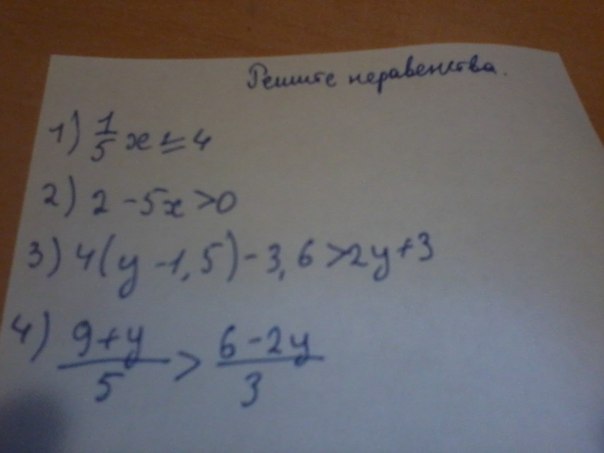 Решите неравенства.
1) 1/5 x ≤ 4
2) 2 - 5x > 0
3) 4(y - 1,5) - 3,6 > 2y + 3
4) (9 + y)/5 > (6 - 2y)/3